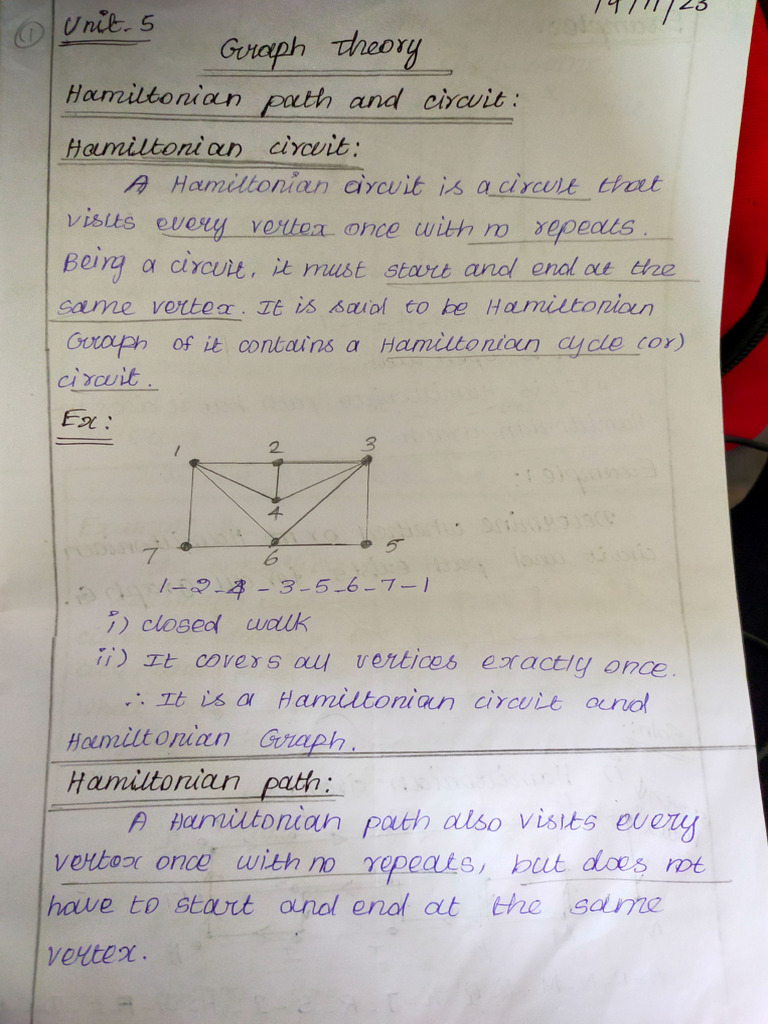 19/11/23
1
Unit-5
Graph theory
Hamiltonian path and circuit:
Hamiltonian circuit:
A Hamiltonian circuit is a circuit that
visits every vertex once with no repeats.
Being a circuit, it must start and end at the
same vertex. It is said to be Hamiltonian
Graph of it contains a Hamiltonian cycle (or)
circuit.
Ex:
1 2 3
4
7 6 5
1-2-4-3-5-6-7-1
i) closed walk
ii) It covers all vertices exactly once.
∴ It is a Hamiltonian circuit and
Hamiltonian Graph.
Hamiltonian path:
A Hamiltonian path also visits every
vertex once with no repeats, but does not
have to start and end at the same
vertex.